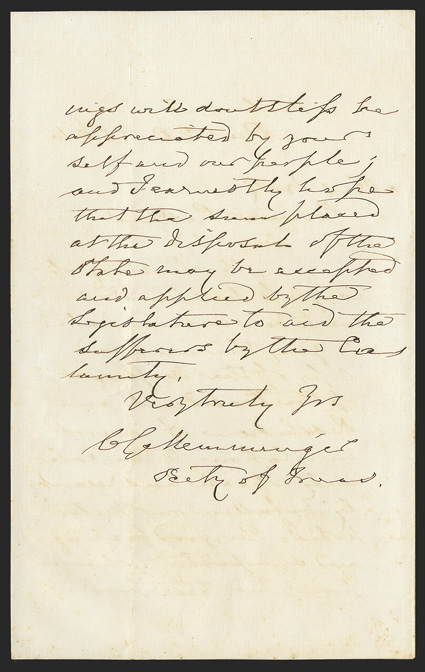 ings will doubtless be
appreciated by your
self and our people;
and I earnestly hope
that the sum placed
at the disposal of the
State may be accepted
and applied by the
Legislature to aid the
sufferers by the Cas
lamity.
Very truly Yrs
C G Memminger
Secty of Treas.